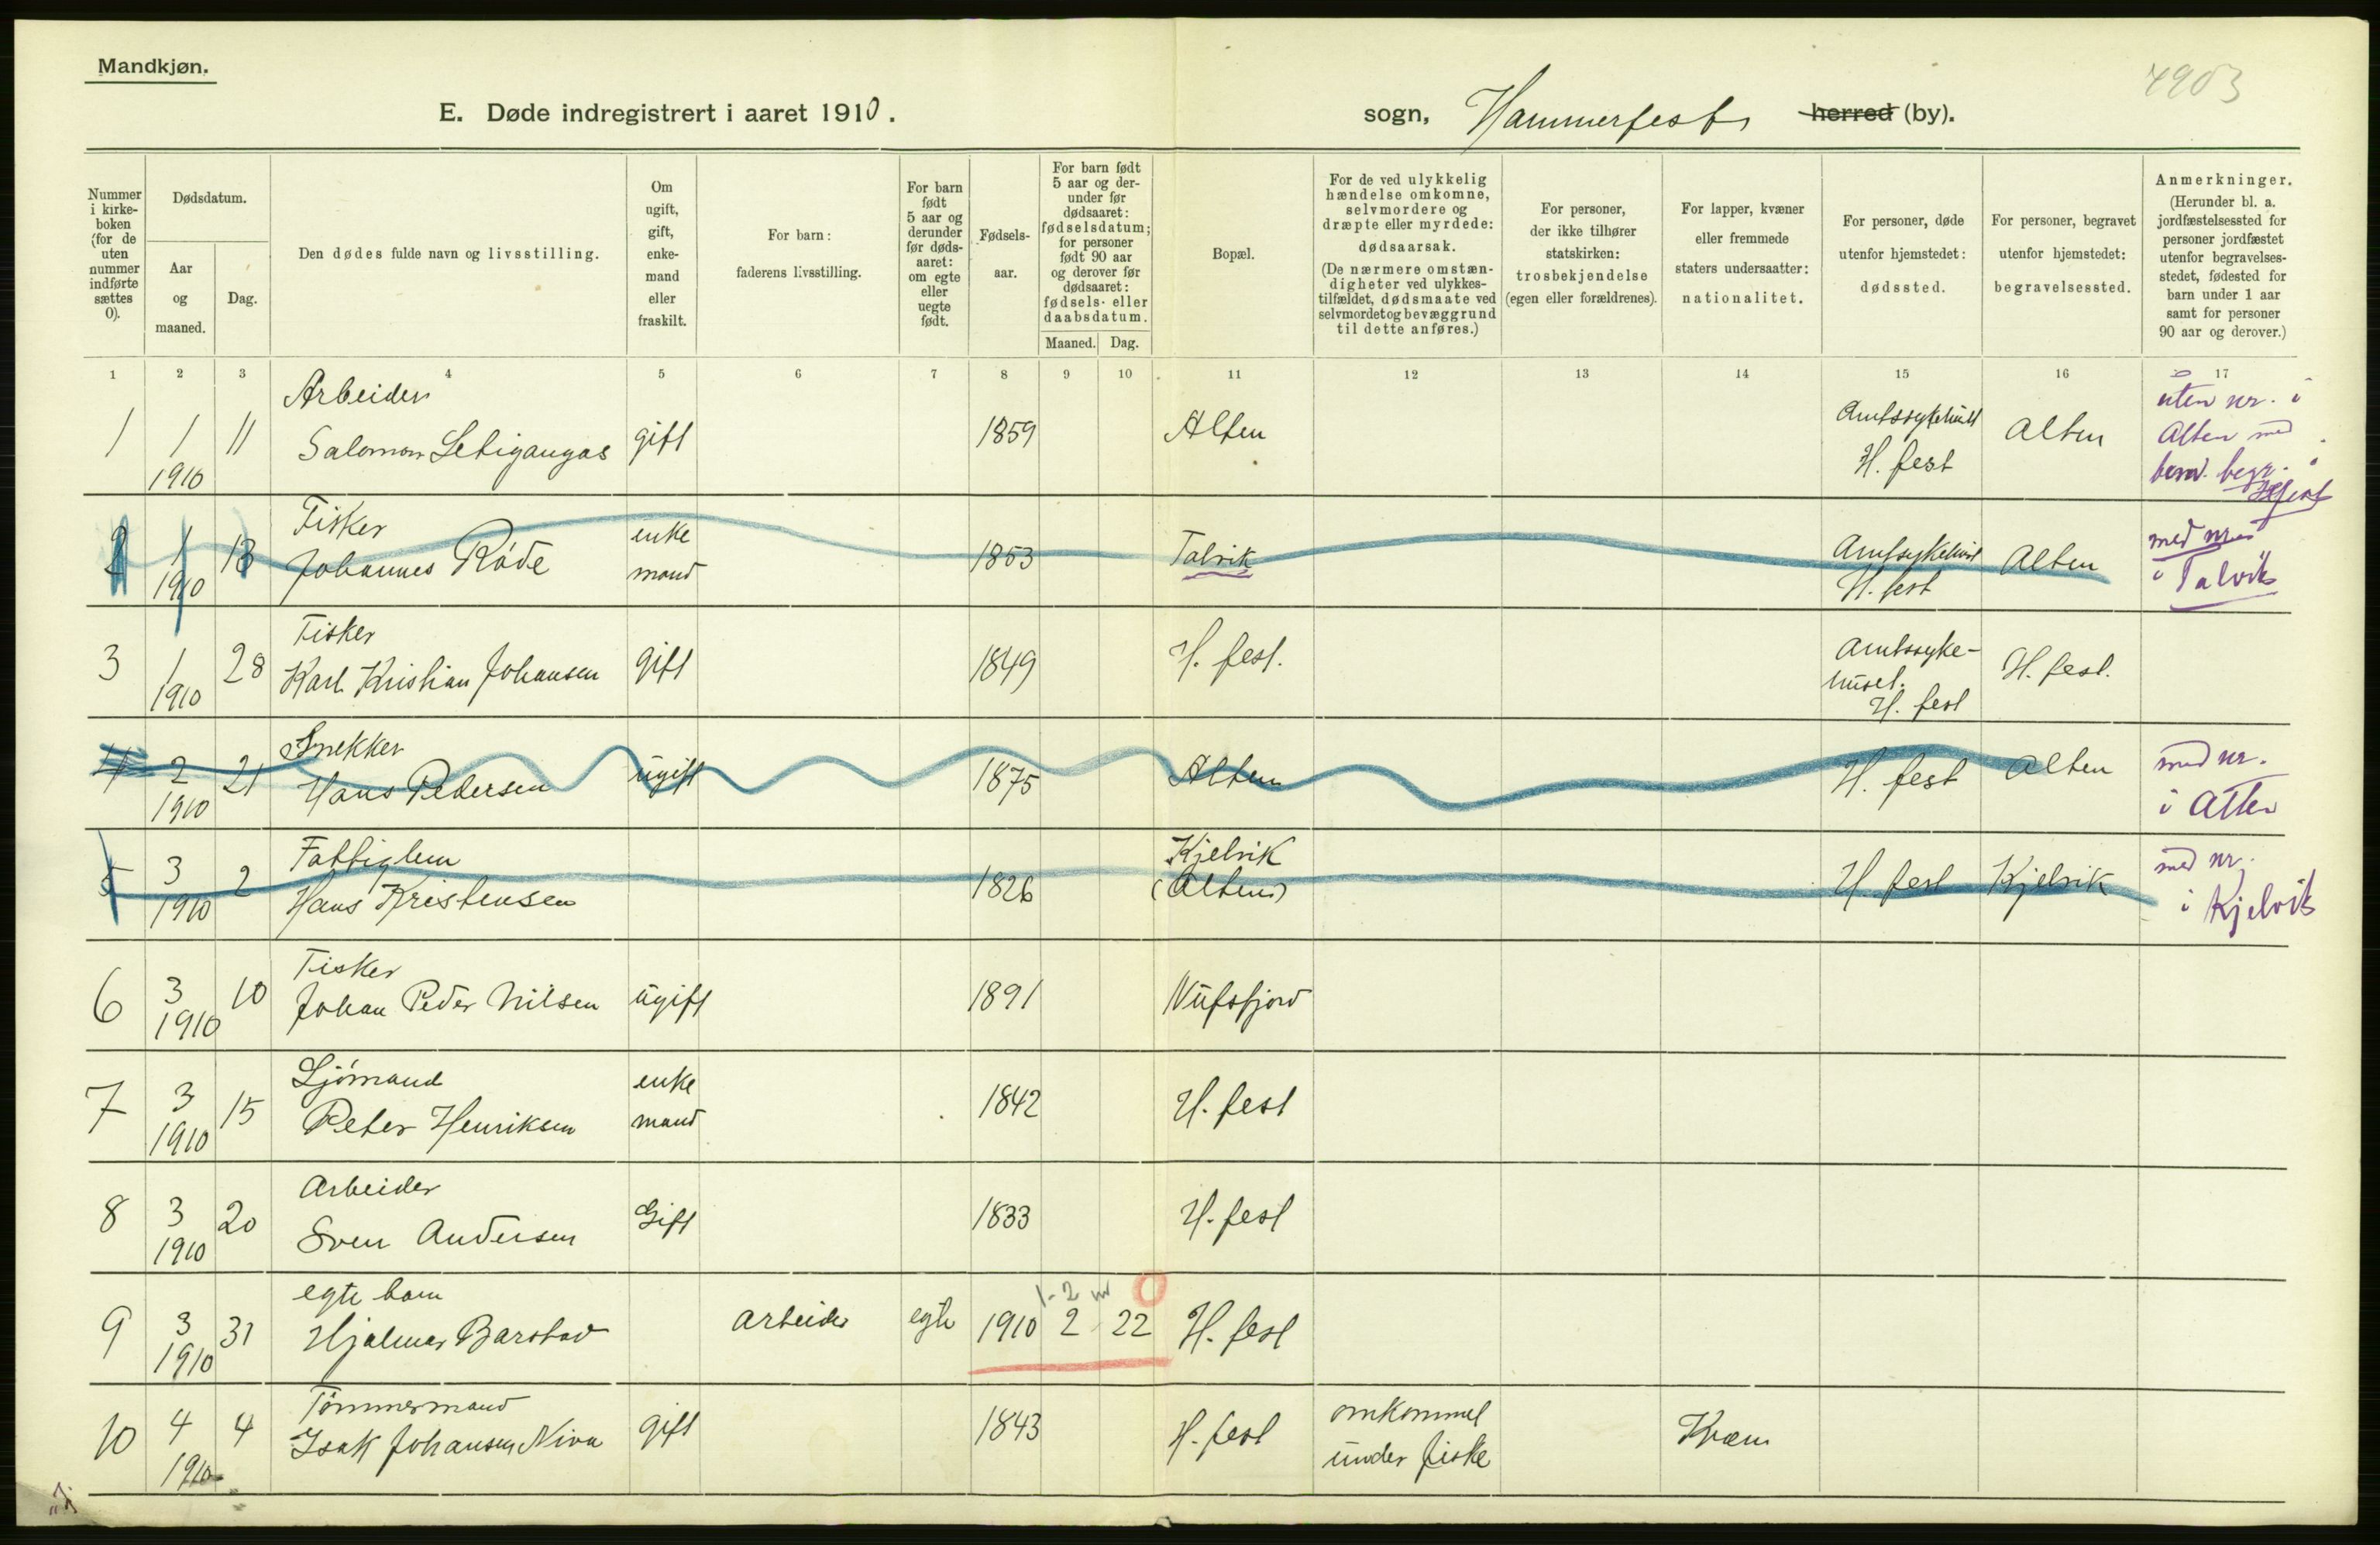 Mandkjøn.
4903
E. Døde indregistrert i aaret 1910.
sogn, Hammerfest herred (by).
Nummer i kirkeboken (for de uten nummer indførte sættes 0).
Dødsdatum.
Aar og maaned.
Dag.
Den dødes fulde navn og livsstilling.
Om ugift, gift, enkemand eller fraskilt.
For barn: faderens livsstilling.
For barn født 5 aar og derunder før dødsaaret: om egte eller uegte født.
Fødselsaar.
For barn født 5 aar og derunder før dødsaaret: fødselsdatum; for personer født 90 aar og derover før dødsaaret: fødsels- eller daabsdatum.
Maaned. Dag.
Bopæl.
For de ved ulykkelig hændelse omkomne, selvmordere og dræpte eller myrdede: dødsaarsak. (De nærmere omstændigheter ved ulykkestilfældet, dødsmaate ved selvmordet og bevæggrund til dette anføres.)
For personer, der ikke tilhører statskirken: trosbekjendelse (egen eller forældrenes).
For lapper, kvæner eller fremmede staters undersaatter: nationalitet.
For personer, døde utenfor hjemstedet: dødssted.
For personer, begravet utenfor hjemstedet: begravelsessted.
Anmerkninger. (Herunder bl. a. jordfæstelsessted for personer jordfæstet utenfor begravelsesstedet, fødested for barn under 1 aar samt for personer 90 aar og derover.)
1 2 3 4 5 6 7 8 9 10 11 12 13 14 15 16 17
1 1 1910 11 Arbeider Salomon Letigangas gift 1859 Alten Amtssykehuset H. fest Alten uten nr. i Alten med bem. begr. i Hfest
2 1 1910 13 Fisker Johannes Råde enke mand 1853 Talvik Amtsykehuset H. fest Alten med nr i Talvik
3 1 1910 28 Fisker Karl Kristian Johansen gift 1849 H. fest. Amtssyke- huset. H. fest H. fest.
4 2 1910 21 Snekker Hans Pedersen ugift 1875 Alten H. fest Alten med nr. i Alten
5 3 1910 2 Fattiglem Hans Kristensen 1826 Kjelvik (Alten) H. fest Kjelvik med nr. i Kjelvik
6 3 1910 10 Fisker Johan Peder Nilsen ugift 1891 Nufsfjord
7 3 1910 15 Sjömand Peter Henriksen enke mand 1842 H. fest
8 3 1910 20 Arbeider Sven Andersen Gift 1833 H. fest
9 3 1910 31 egte barn Hjalmar Barstad arbeider egte 1910 1-2 m 2 22 H. fest
10 4 1910 4 Tömmermand Isak Johansen Niva gift 1843 H. fest omkommet under fiske Kvæn